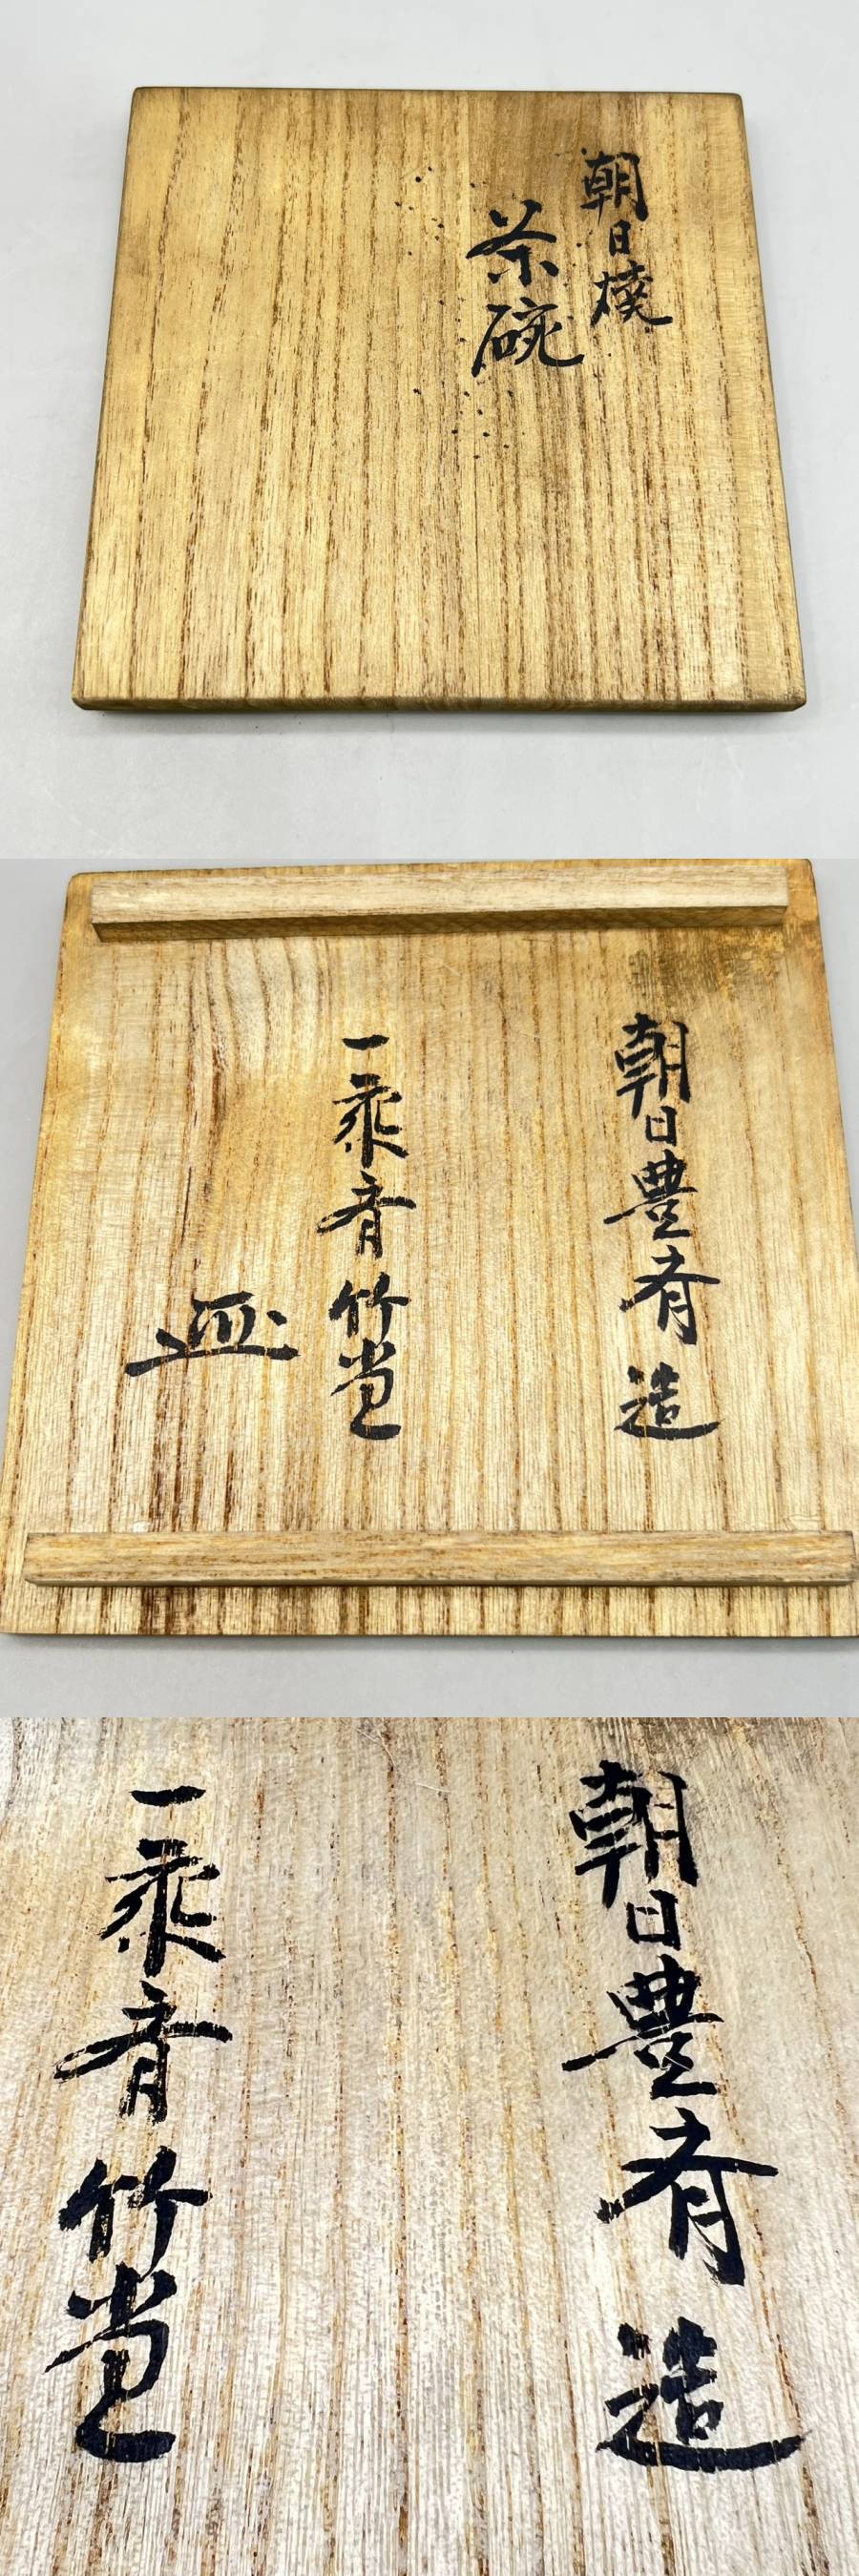 朝日焼
茶碗
朝日豊斎造
一乗斎竹堂
朝日豊斎造
一乗斎竹堂